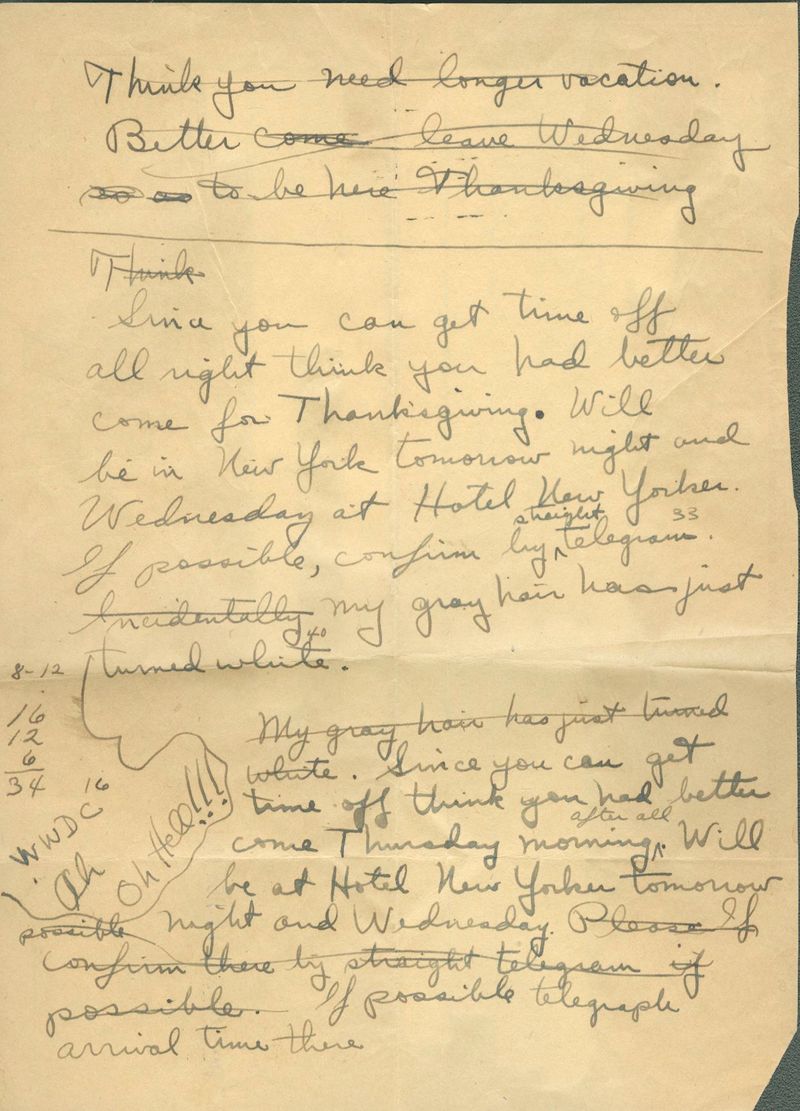 Think you need longer vacation.
Better come leave Wednesday
so as to be here Thanksgiving
Think
Since you can get time off
all right think you had better
come for Thanksgiving. Will
be in New York tomorrow night and
Wednesday at Hotel New Yorker.
straight 33
If possible, confirm by telegram.
Incidentally my gray hair has just
40
turned white.
8-12
16
12
6
34
My gray hair has just turned
white. Since you can get
time off think you had better
after all
come Thursday morning. Will
be at Hotel New Yorker tomorrow
night and Wednesday. Please If
possible
confirm there by straight telegram if
possible. If possible telegraph
arrival time there
16
WWDC
Ah
Oh Hell!!!